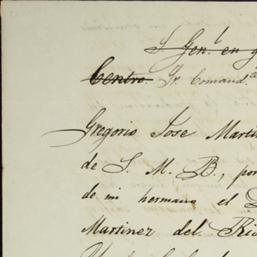 S. Genl. en g
Centro. Sr. Comandte
Gregorio Jose Martin
de S. M. B., por
de mi hermano el D
Martinez del Rio